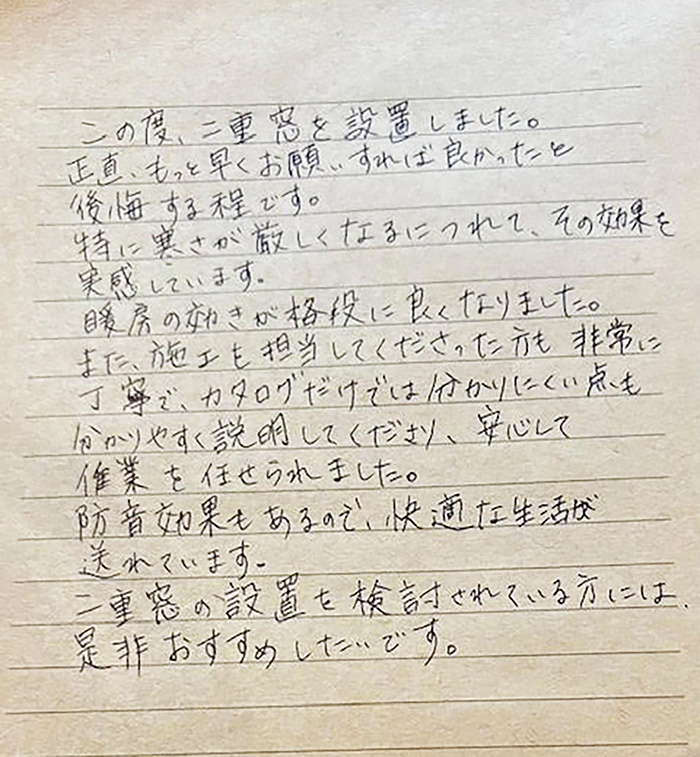 この度、二重窓を設置しました。
正直、もっと早くお願いすれば良かったと
後悔する程です。
特に寒さが厳しくなるにつれて、その効果を
実感しています。
暖房の効きが格段に良くなりました。
また、施工を担当してくださった方も非常に
丁寧で、カタログだけでは分かりにくい点も
分かりやすく説明してくださり、安心して
作業を任せられました。
防音効果もあるので、快適な生活が
送れています。
二重窓の設置を検討されている方には、
是非おすすめしたいです。